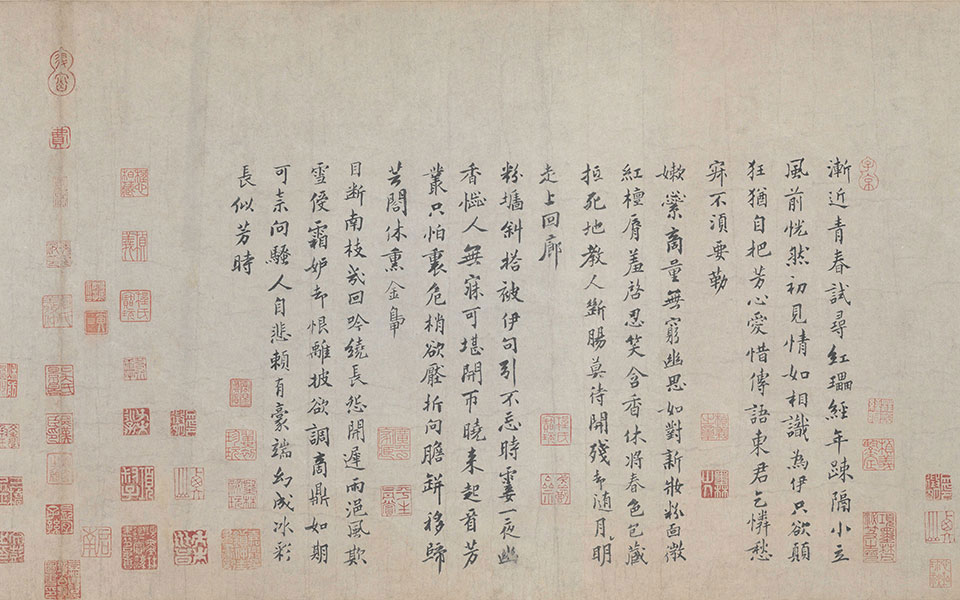 漸近青春試尋紅瓃經年疎隔小立
風前恍然初見情如相識為伊只欲顛
狂猶自把芳心愛惜傳語東君乞憐愁
寂不須要勒
嫩蘂商量無窮幽思如對新妝粉面微
紅檀脣羞啓忍笑含香休將春色包藏
抵死地教人斷腸莫待開殘却隨月明
走上回廊
粉墻斜搭被伊句引不忘時霎一夜幽
香惱人無寐可堪開帀曉來起看芳
叢只怕裏危梢欲壓折向膽缾移歸
芸閣休熏金鳧
目斷南枝幾回吟繞長怨開遲雨浥風欺
雪侵霜妒却恨離披欲調商鼎如期
可柰向騷人自悲賴有豪端幻成冰彩
長似芳時